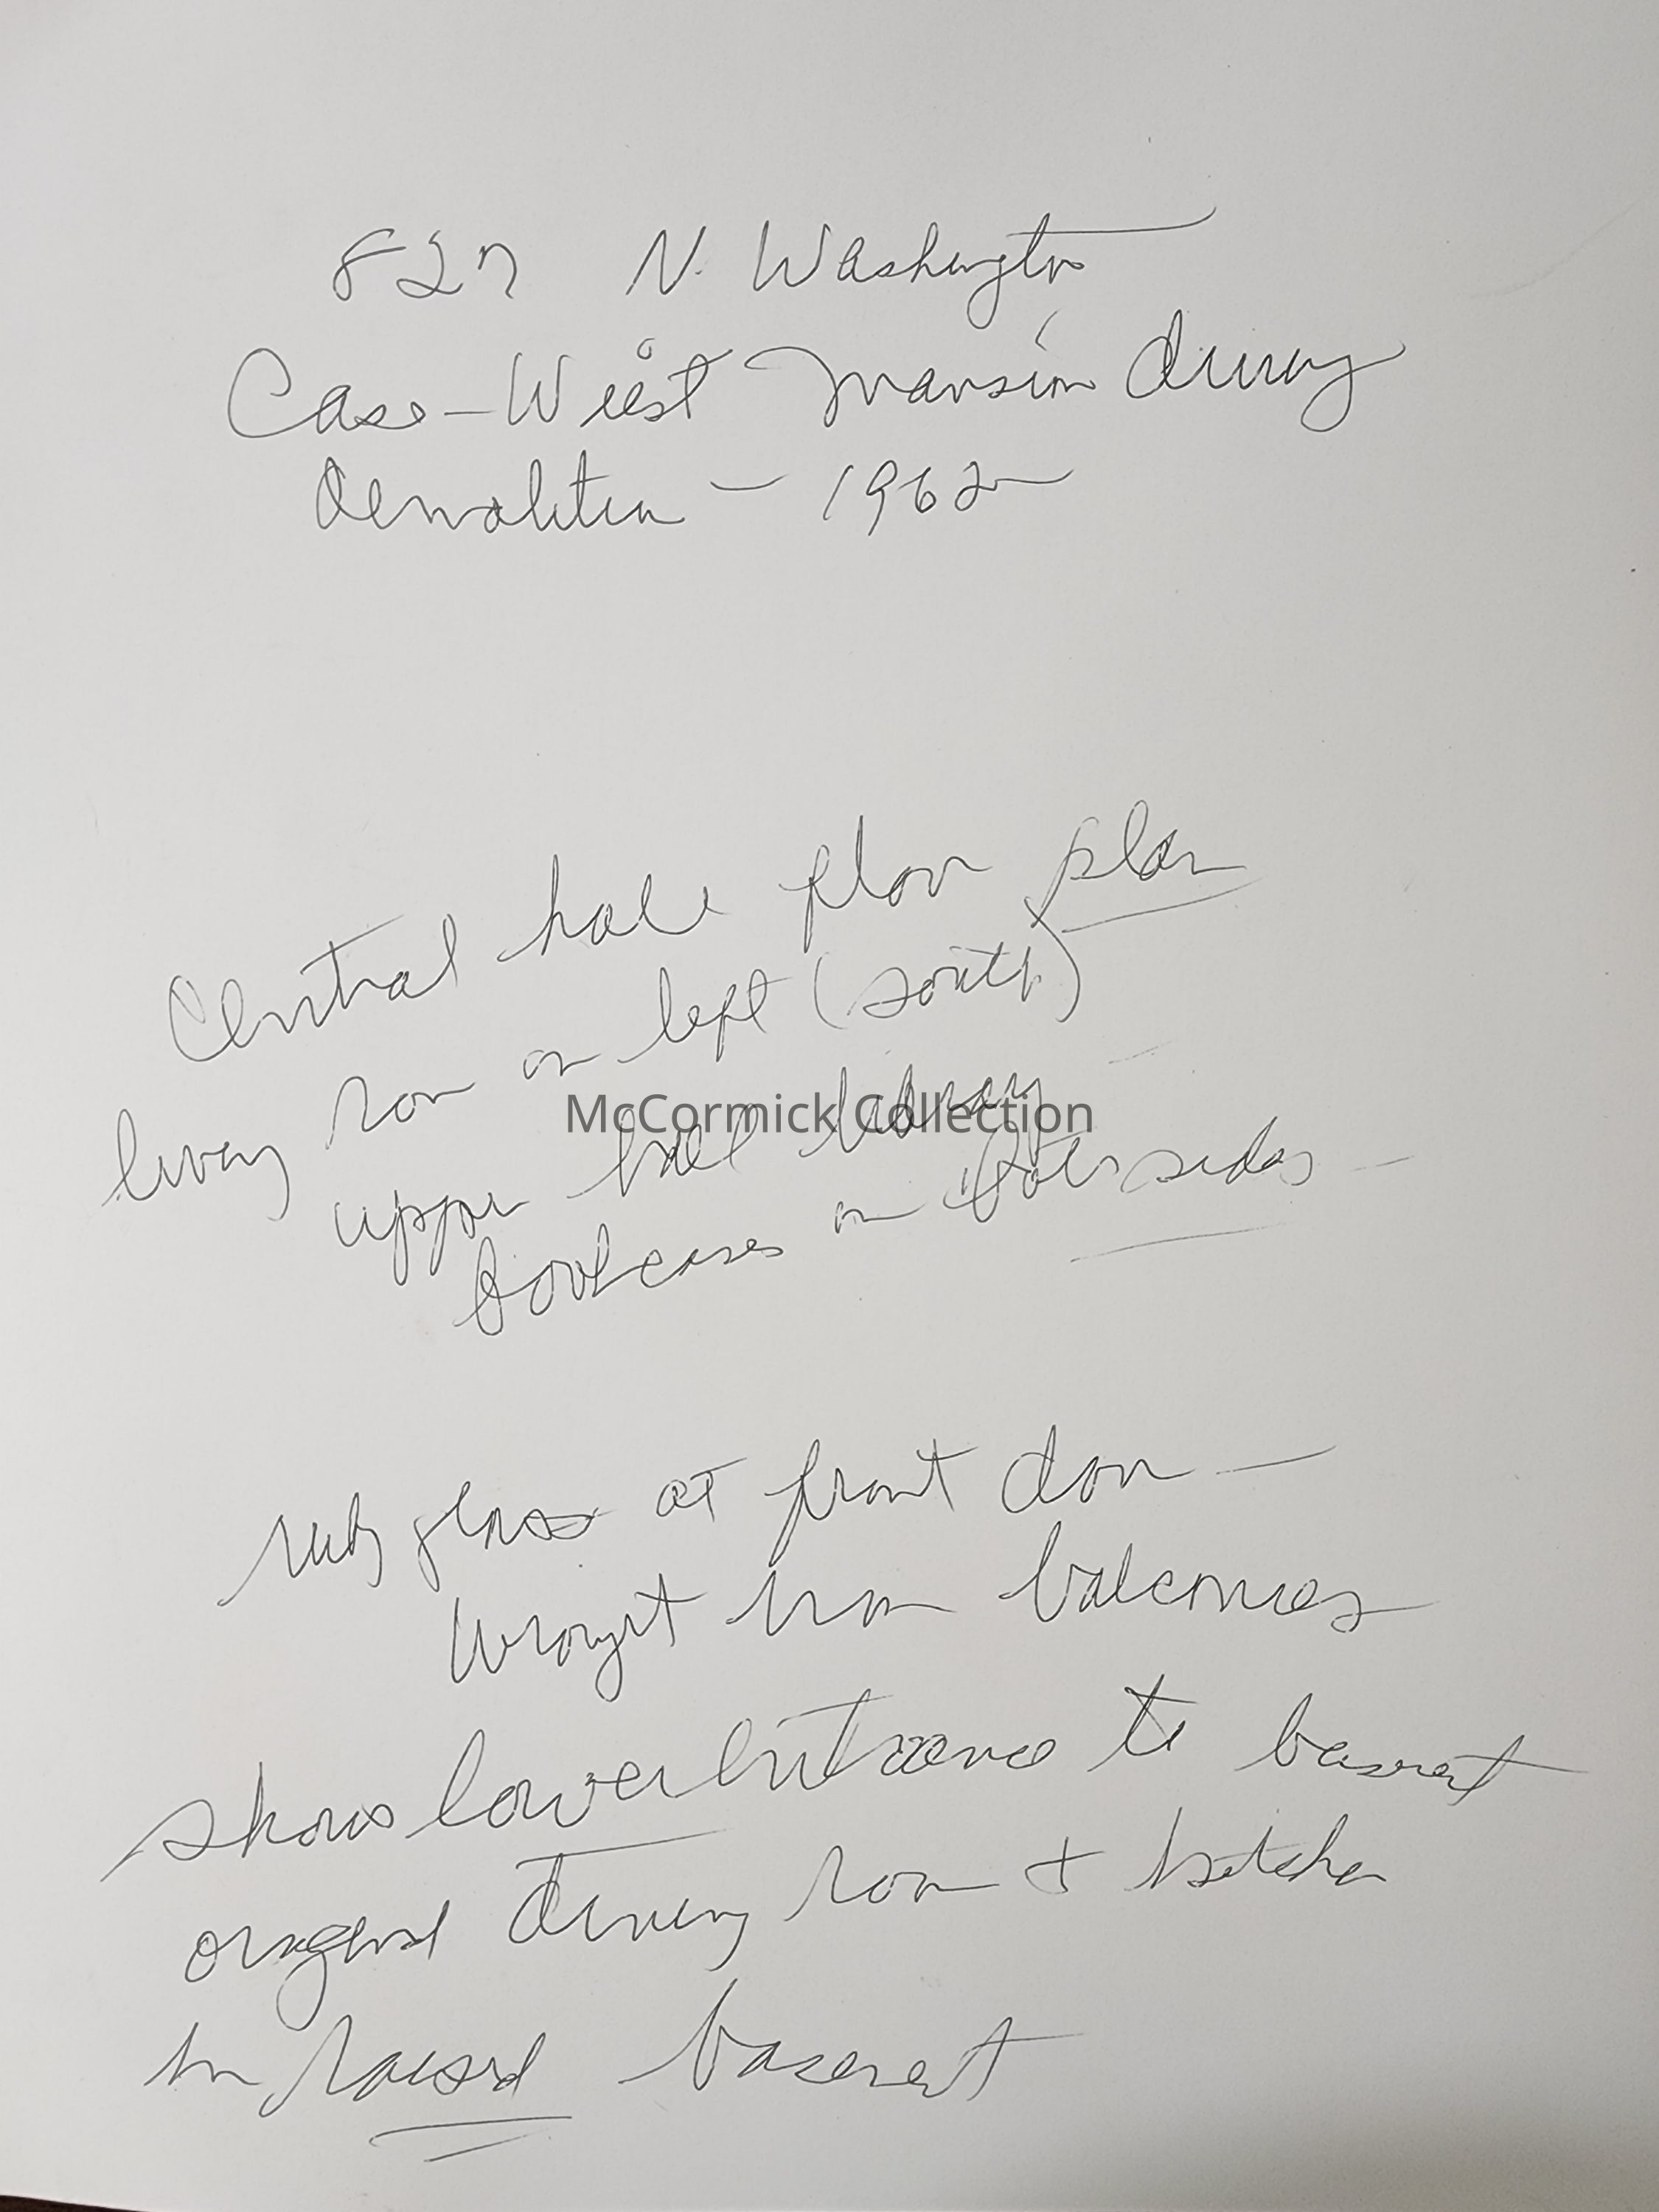 827 N. Washington
Case-Wiest Mansion during
Demolition - 1962
Central hall floor plan
living room on left (south)
upper hall library -
bookcases on both sides -
ruby glass at front door -
wrought iron balconies
shows lower entrance to basement
original dining room + kitchen
in raised basement
McCormick Collection